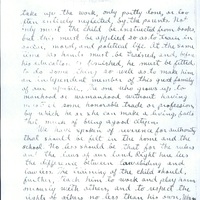 take up the work, only partly done, or too
often entirely neglected, by the parents. Not
only must the child be instructed from books,
but this must be applied so as to train the
social, moral, and political life. At the same
time his hands must be trained, and when
his education is finished, he must be fitted
to do some thing so well as to make him
an independent member of this great family
of our nation. No one who grows up to
manhood or womanhood without having
some honorable trade or profession
by which he or she can make a living, fulfils
of being a good citizen.
We have spoken of reverence for authority
that should be felt in the home and the
school. No less should be that for the rulers
and the laws of our land. Right here lies
the difference between lawabiding and
lawless. The training of the child should,
further, teach him to work and play harm-
oniously with others, and to respect the
rights of others no less than his own.